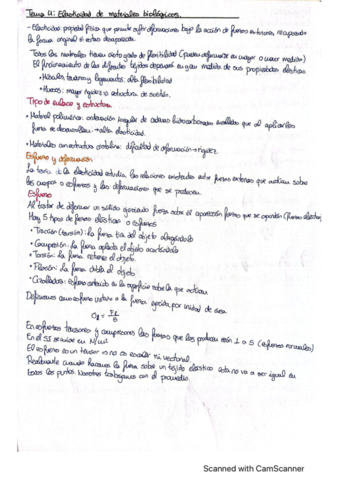 Tema 4: Elasticidad de materiales biológicos.
- Elasticidad: propiedad física que permite sufrir deformaciones bajo la acción de fuerzas exteriores, recuperando
la forma original si estas desaparecen.
Todos los materiales tienen cierto grado de flexibilidad (pueden deformarse en mayor o menor medida)
El funcionamiento de los diferentes tejidos dependen en gran medida de sus propiedades elásticas
• Músculos, tendones y ligamentos: alta flexibilidad
• Huesos: mayor rigidez o estructura de sostén.
Tipo de enlace y estructura
• Material polimérico: ordenación irregular de cadenas hidrocarbonadas enrolladas que al aplicarles
fuerza se desenrollan → alta elasticidad.
• Materiales con estructura cristalina: dificultad de deformación → rigidez.
Esfuerzo y deformación
La teoría de la elasticidad estudia las relaciones existentes entre fuerzas externas que actúan sobre
los cuerpos o esfuerzos y las deformaciones que se producen.
Esfuerzo
Al tratar de deformar un sólido ejerciendo fuerza sobre él aparecerán fuerzas que se oponen (fuerzas elásticas)
Hay 5 tipos de fuerzas elásticas o esfuerzos
• Tracción (tensión): la fuerza tira del objeto alargándolo
• Compresión: la fuerza aplasta el objeto acortándolo
• Torsión: la fuerza retuerce el objeto.
• Flexión: la fuerza dobla el objeto
• Cizalladura: esfuerzo contenido en la superficie sobre la que actúan
Definiremos como esfuerzo unitario a la fuerza ejercida por unidad de área
En esfuerzos tensores y compresores las fuerzas que los producen son ⊥ a S (esfuerzos normales)
En el SI se mide en N/m²
El esfuerzo es un tensor ni es escalar ni vectorial.
Realmente cuando hacemos la fuerza sobre un tejido elástico esta no va a ser igual en
todos los puntos. Nosotros trabajamos con el promedio.
Scanned with CamScanner